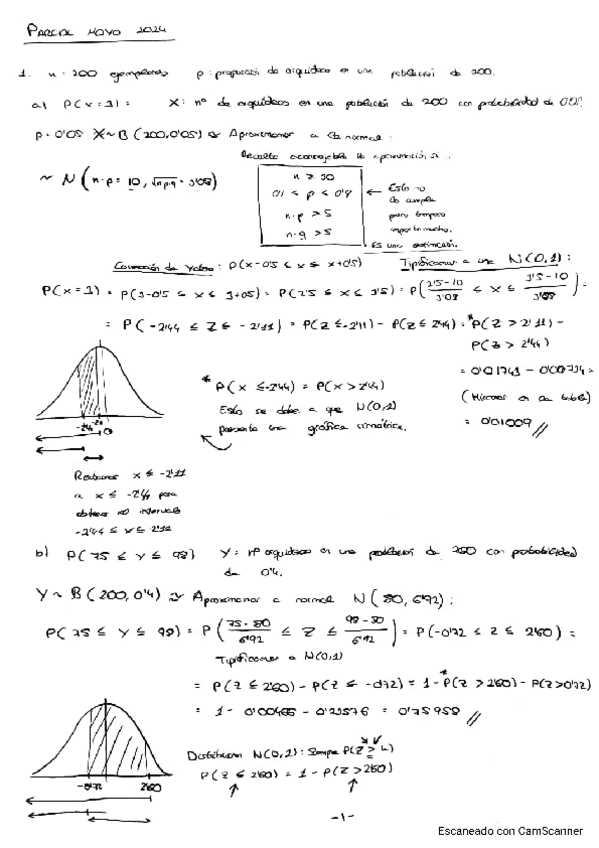 PARCIAL MAYO 2024
1. n = 200 ejemplares p: proporción de orquídeas en una población de 200.
a) P(x=3) = X: nº de orquídeas en una población de 200 con probabilidad de 0'05.
p = 0'05 X ~ B(200, 0'05) Aproximamos a la normal:
~ N(n·p = 10, √npq = 3'08)
n ≥ 30
0'1 ≤ p ≤ 0'9
n·p > 5
n·q > 5
Esto no
se cumple
pero tampoco
importa mucho.
Es una estimación.
Corrección de Yates: P(x-0'5 ≤ x ≤ x+0'5) Tipificamos a una N(0,1):
P(x=3) = P(3-0'5 ≤ x ≤ 3+0'5) = P(2'5 ≤ x ≤ 3'5) = P(2'5-10/3'08 ≤ x ≤ 3'5-10/3'08) =
= P(-2'44 ≤ Z ≤ -2'11) = P(Z ≤ -2'11) - P(Z ≤ -2'44) = *P(Z > 2'11) -
P(Z > 2'44)
= 0'01743 - 0'00734 =
(Miramos en la tabla)
= 0'01009 //
* P(x ≤ -2'44) = P(x > 2'44)
Esto se debe a que N(0,1)
presenta una gráfica simétrica.
-2'44 -2'11 0
Restamos x ≤ -2'11
a x ≤ -2'44 para
obtener el intervalo
-2'44 ≤ x ≤ 2'11
b) P(75 ≤ Y ≤ 98) Y = nº orquídeas en una población de 200 con probabilidad
de 0'4.
Y ~ B(200, 0'4) Aproximamos a normal N(80, 6'92):
P(75 ≤ Y ≤ 98) = P(75-80/6'92 ≤ Z ≤ 98-80/6'92) = P(-0'72 ≤ Z ≤ 2'60) =
Tipificamos a N(0,1)
= P(Z ≤ 2'60) - P(Z ≤ -0'72) = 1 - *P(Z > 2'60) - P(Z > 0'72)
= 1 - 0'00466 - 0'23576 = 0'75958 //
-0'72 2'60
Distribución N(0,1): Siempre P(Z > L)
P(Z ≤ 2'60) = 1 - P(Z > 2'60)
-1-
Escaneado con CamScanner